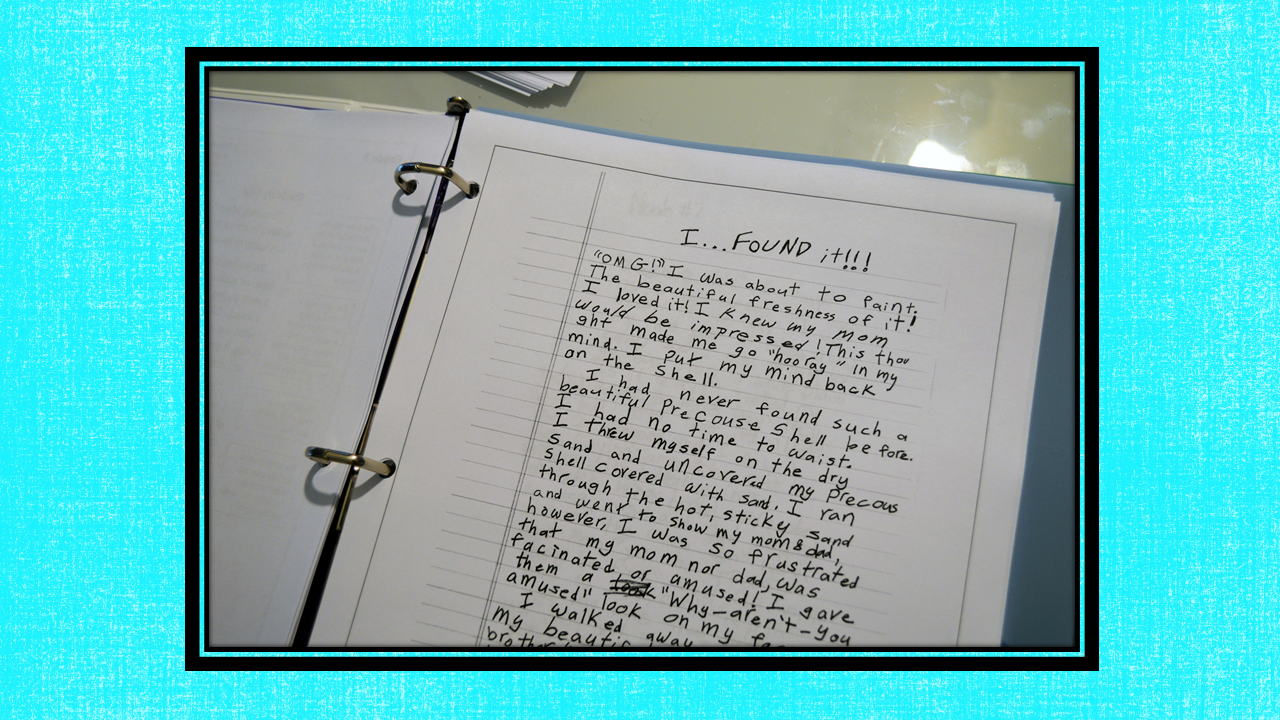 I...FOUND it!!!
"OMG!" I was about to faint.
The beautiful freshness of it!
I loved it! I knew my mom
would be impressed! This thou
ght made me go "hooray" in my
mind. I put my mind back
on the shell.
I had never found such a
beautiful precouse shell before.
I had no time to waist.
I threw myself on the dry
sand and uncovered my precous
shell covered with sand. I ran
through the hot, sticky sand
and went to show my mom & dad,
however, I was so frustrated
that my mom nor dad, was
facinated or amused! I gave
them a look "Why-aren't-you
amused" look on my
I walked away
my